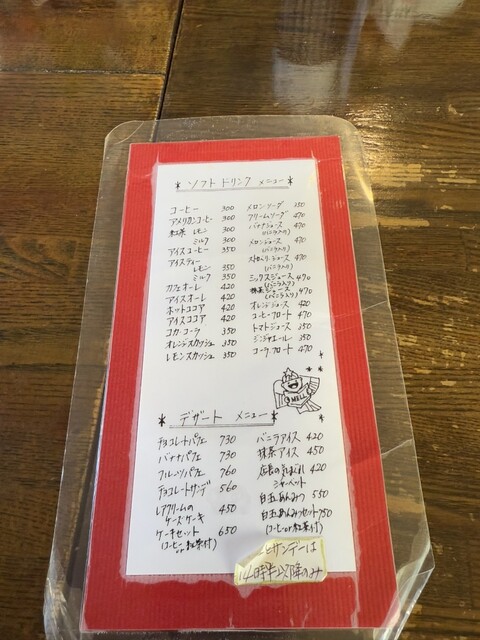 * ソフト ドリンク メニュー *
コーヒー 300
アメリカンコーヒー 300
紅茶 レモン 300
ミルク 300
アイスコーヒー 350
アイスティー
レモン 350
ミルク 350
カフェオーレ 420
アイスオーレ 420
ホットココア 420
アイスココア 420
コカ・コーラ 350
オレンジスカッシュ 350
レモンスカッシュ 350
メロンソーダ 350
クリームソーダ 470
バナナジュース 470
(バニラ入り)
メロンジュース 470
(バニラ入り)
ストロベリージュース 470
(バニラ入り)
ミックスジュース 470
(バニラ入り)
抹茶ジュース 470
(バニラ入り)
オレンジジュース 420
コーヒーフロート 470
トマトジュース 350
ジンジャエール 350
コーラフロート 470
* デザート メニュー *
チョコレートパフェ 730
バナナパフェ 730
フルーツパフェ 760
チョコレートサンデー 560
レアクリームの
チーズケーキ 450
ケーキセット 650
(コーヒー or 紅茶付)
バニラアイス 420
抹茶アイス 450
店長の気まぐれ 420
シャーベット
白玉あんみつ 550
白玉あんみつセット 750
(コーヒー or 紅茶付)
サンデーは
14時半以降のみ